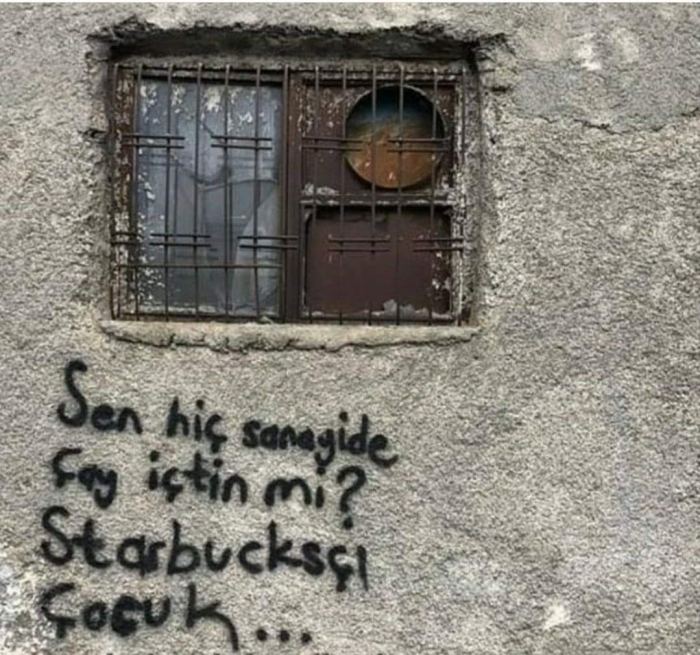 Sen hiç sanayide
Çay içtin mi?
Starbucksçı
Çocuk...